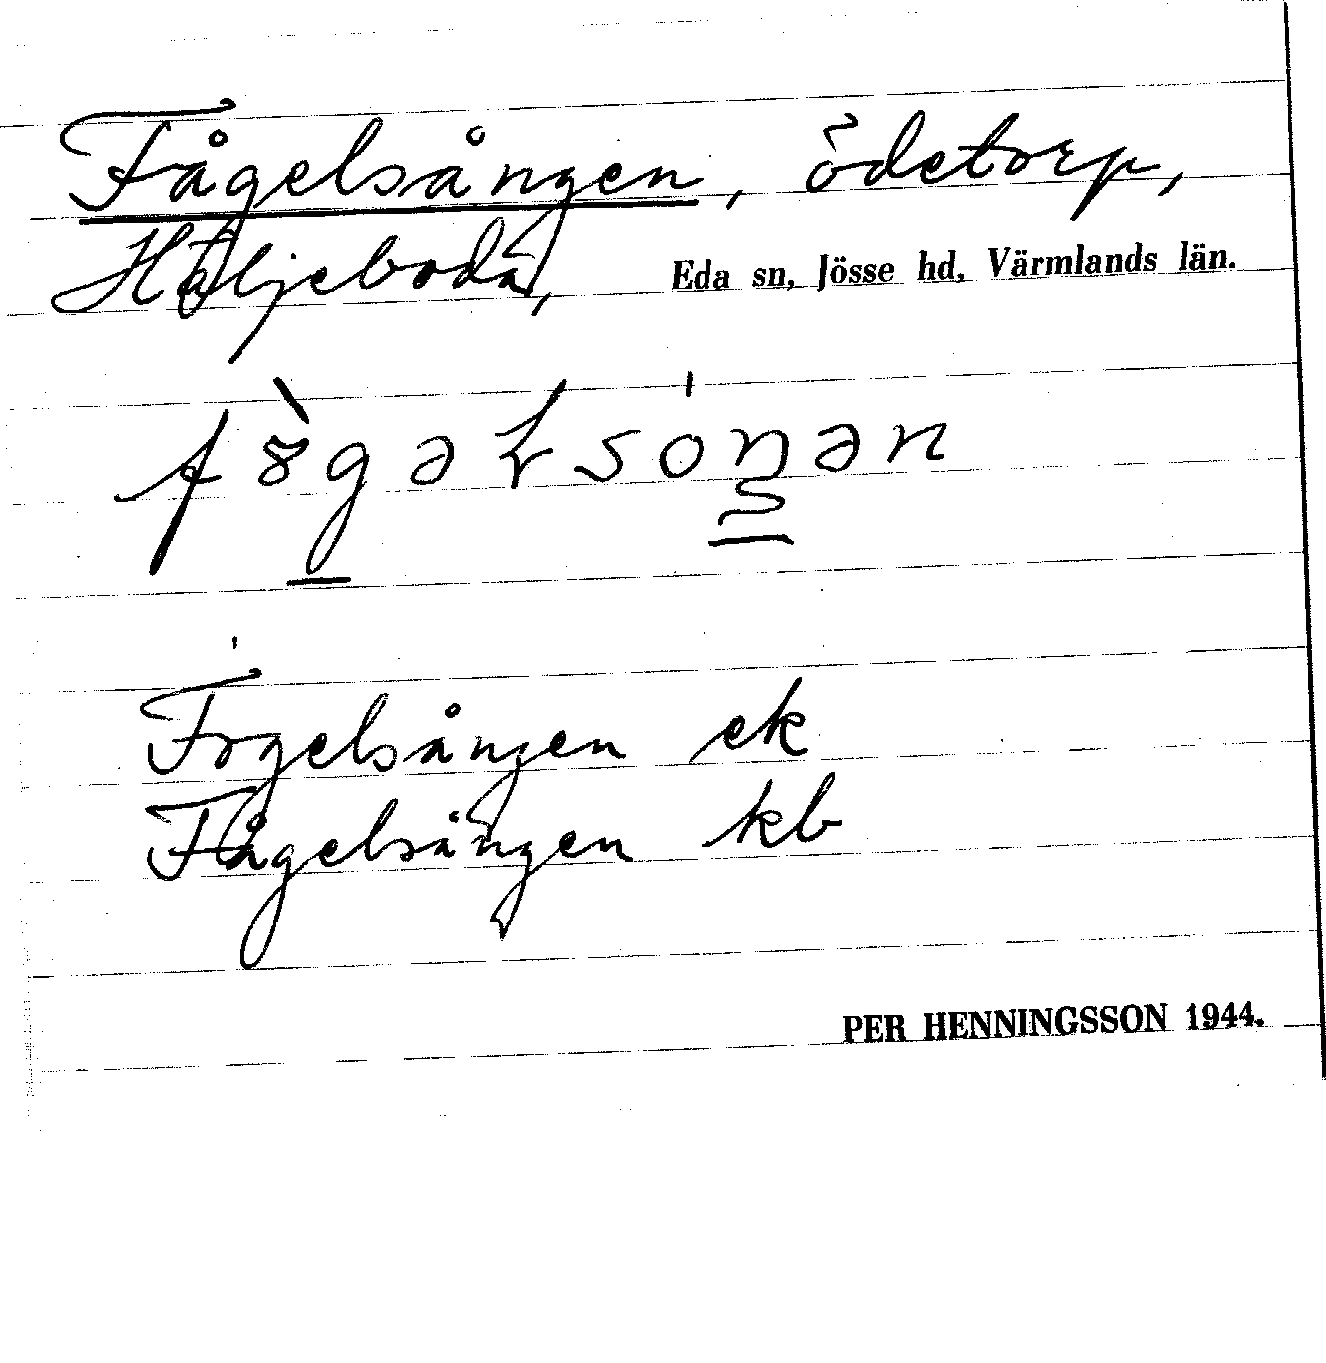 Fågelsången, ödetorp,
Häljeboda, Eda sn, Jösse hd, Värmlands län.
Fogelsången ek
Fågelsången kb
PER HENNINGSSON 1944.